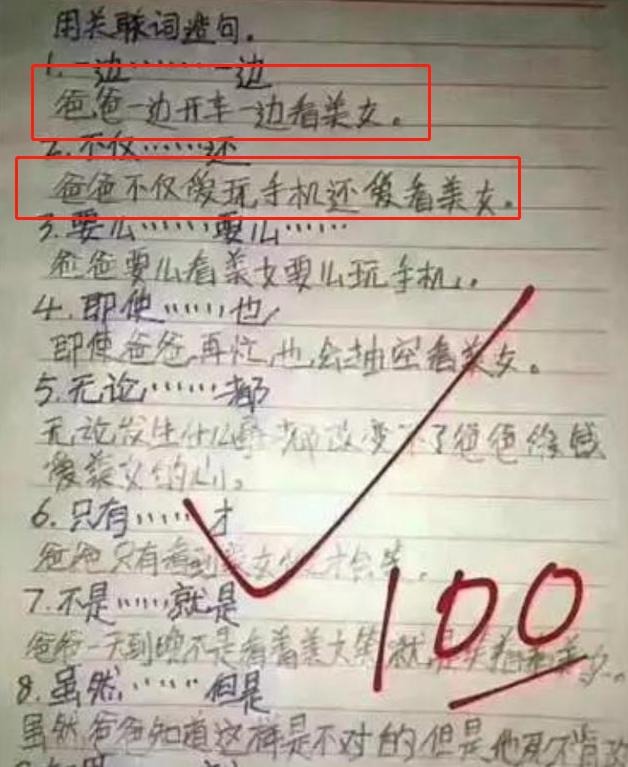 用关联词造句。
1.一边……一边
爸爸一边开车一边看美女。
2.不仅……还
爸爸不仅爱玩手机还爱看美女。
3.要么……要么……
爸爸要么看美女要么玩手机。
4.即使……也
即使爸爸再忙,也会抽空看美女。
5.无论……都
无论发生什么事都改变不了爸爸你
爱美女的心。
6.只有……才
爸爸只有看到美女才会笑。
7.不是……就是
爸爸一天到晚不是看着美女笑就是
美女。
8.虽然……但是
虽然爸爸知道这样是不对的但是他死不肯改
100